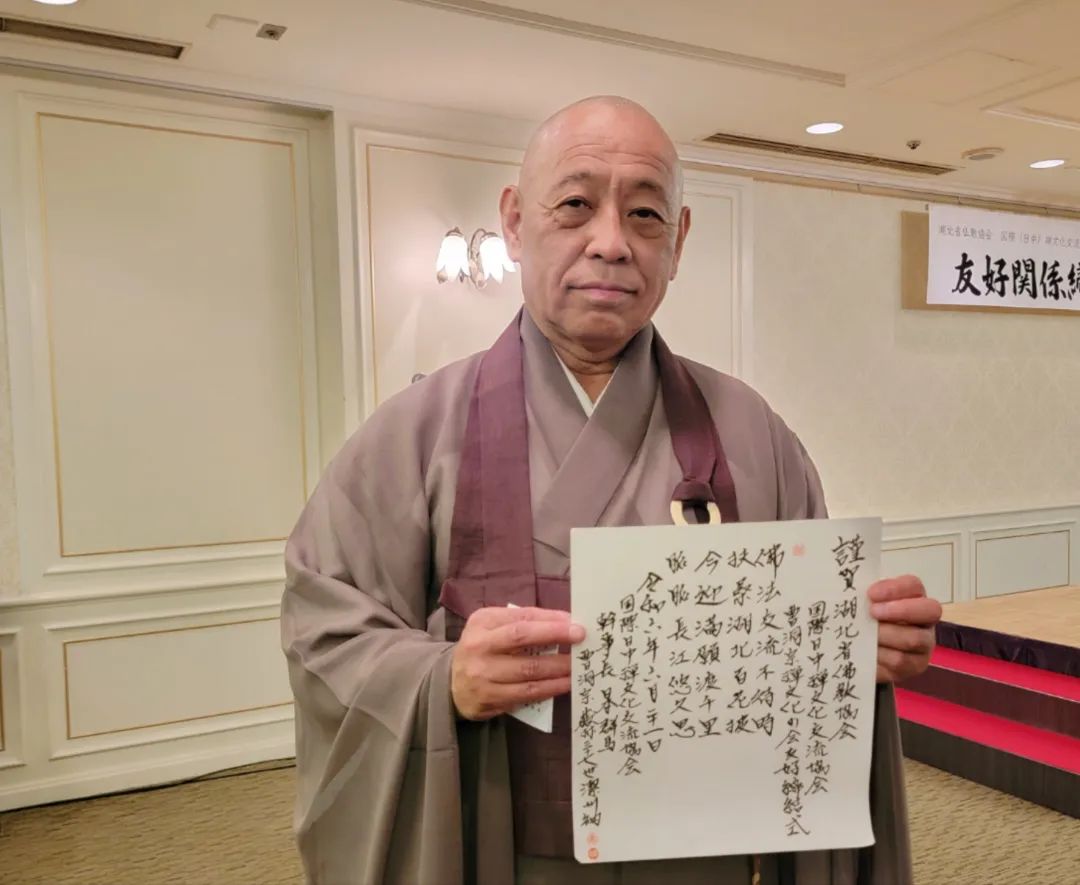 湖北省仏教協会 国際（日中）禅文化交流
友好関係締
謹賀 湖北省佛教協会
国際日中禅文化交流協会
曹洞宗禅文化の会友好締結式
佛法交流不時
扶桑湖北百花披
今迎満願渡千里
長江悠久思
令和六年六月二十一日
国際日中禅文化交流協会
幹事長 群馬
曹洞宗